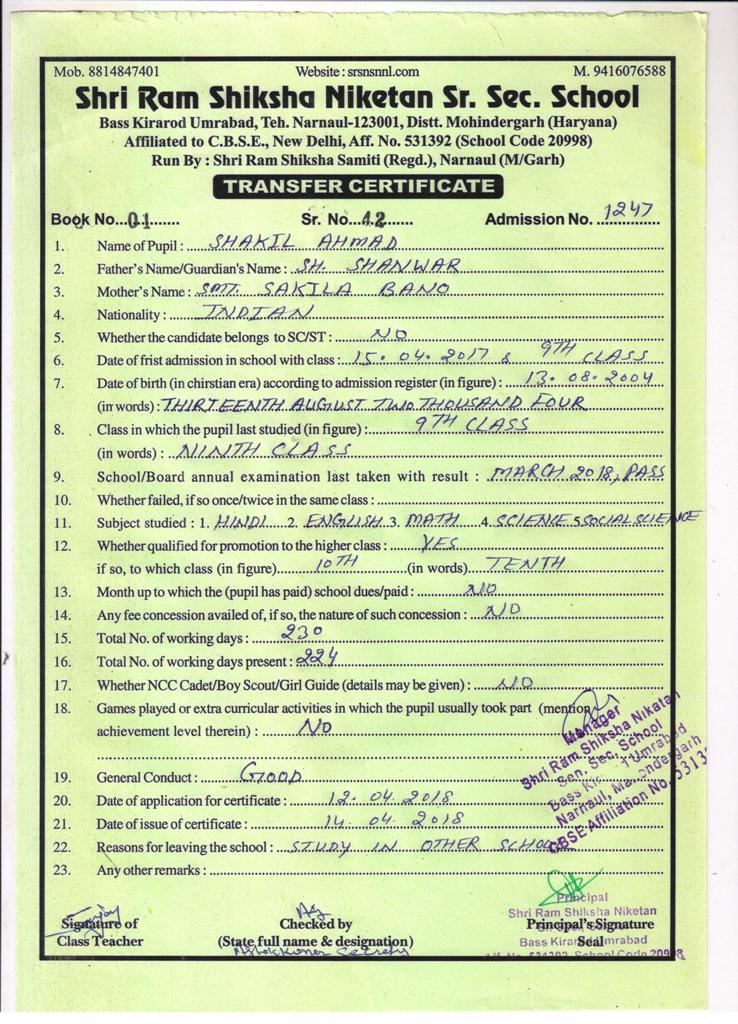 Mob. 8814847401 Website : srsnsnnl.com M. 9416076588
Shri Ram Shiksha Niketan Sr. Sec. School
Bass Kirarod Umrabad, Teh. Narnaul-123001, Distt. Mohindergarh (Haryana)
Affiliated to C.B.S.E., New Delhi, Aff. No. 531392 (School Code 20998)
Run By : Shri Ram Shiksha Samiti (Regd.), Narnaul (M/Garh)
TRANSFER CERTIFICATE
Book No...01....... Sr. No...42...... Admission No. 1247
1. Name of Pupil : SHAKIL AHMAD
2. Father's Name/Guardian's Name : SH. SHANWAR
3. Mother's Name : SMT. SAKILA BANO
4. Nationality : INDIAN
5. Whether the candidate belongs to SC/ST : NO
6. Date of frist admission in school with class : 15.04.2017 & 9TH CLASS
7. Date of birth (in chirstian era) according to admission register (in figure) : 13.08.2004
(in words) : THIRTEENTH AUGUST TWO THOUSAND FOUR
8. Class in which the pupil last studied (in figure) : 9TH CLASS
(in words) : NINTH CLASS
9. School/Board annual examination last taken with result : MARCH 2018, PASS
10. Whether failed, if so once/twice in the same class :
11. Subject studied : 1. HINDI 2. ENGLISH 3. MATH 4. SCIENCE 5 SOCIAL SLIENCE
12. Whether qualified for promotion to the higher class : YES
if so, to which class (in figure) 10TH (in words) TENTH
13. Month up to which the (pupil has paid) school dues/paid : NO
14. Any fee concession availed of, if so, the nature of such concession : NO
15. Total No. of working days : 230
16. Total No. of working days present : 224
17. Whether NCC Cadet/Boy Scout/Girl Guide (details may be given) : NO
18. Games played or extra curricular activities in which the pupil usually took part (mention
achievement level therein) : NO
Manager
Shri Ram Shiksha Nikatan
Sen. Sec. School
Bass Umrabad
Narnaul, Mahendergarh
CBSE Affiliation No. 5313
19. General Conduct : GOOD
20. Date of application for certificate : 12.04.2018
21. Date of issue of certificate : 14.04.2018
22. Reasons for leaving the school : STUDY IN OTHER SCHOOL
23. Any other remarks :
Principal
Shri Ram Shiksha Niketan
Signature of Checked by Principal's Signature
Class Teacher (State full name & designation) Seal
Bass Kirarod Umrabad
531392, School Code 20998